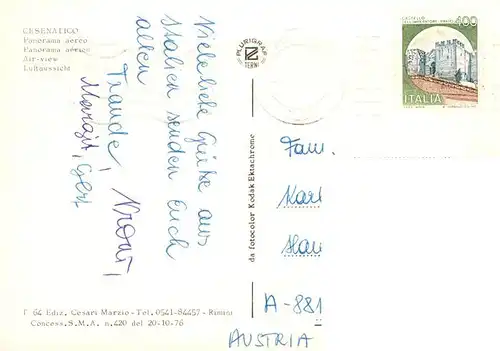 CESENATICO
Panorama aereo
Panorama aérien
Air-view
Luftaussicht
Viele liebe Grüße aus
Italien senden Euch
allen
Traude,
Margit, Gert
PLURIGRAF
TERNI
da fotocolor Kodak Ektachrome
CASTELLO
400
ITALIA
Fam.
Karl
A-881
AUSTRIA
F 64 Ediz. Cesari Marzio - Tel. 0541-84457 - Rimini
Concess. S.M.A. n.420 del 20-10-76